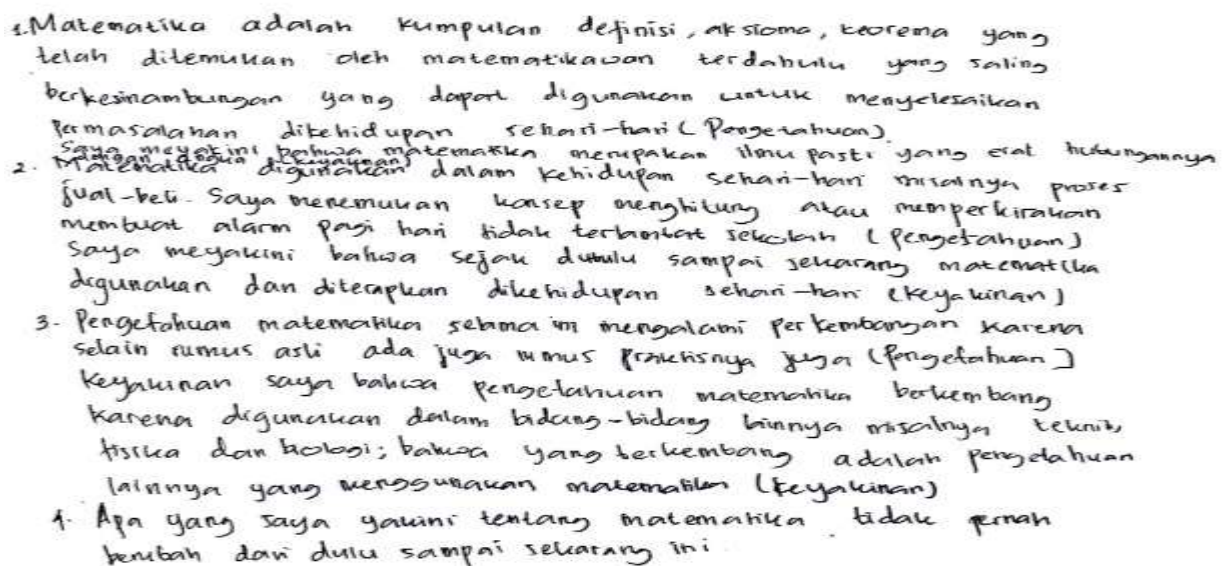 1. Matematika adalah kumpulan definisi, aksioma, teorema yang
telah ditemukan oleh matematikawan terdahulu yang saling
berkesinambungan yang dapat digunakan untuk menyelesaikan
Permasalahan dikehidupan sehari-hari (Pengetahuan).
Saya meyakini bahwa matematika merupakan ilmu pasti yang erat hubungannya
dengan angka (keyakinan)
2. Matematika digunakan dalam kehidupan sehari-hari misalnya proses
jual-beli. Saya menemukan konsep menghitung atau memperkirakan
membuat alarm pagi hari tidak terlambat sekolah (pengetahuan)
Saya meyakini bahwa sejak dahulu sampai sekarang matematika
digunakan dan diterapkan dikehidupan sehari-hari (keyakinan)
3. Pengetahuan matematika selama ini mengalami perkembangan karena
selain rumus asli ada juga rumus praktisnya juga (Pengetahuan)
Keyakinan saya bahwa pengetahuan matematika berkembang
karena digunakan dalam bidang-bidang lainnya misalnya teknik,
fisika dan biologi; bahwa yang berkembang adalah pengetahuan
lainnya yang menggunakan matematika (keyakinan)
4. Apa yang saya yakini tentang matematika tidak pernah
berubah dari dulu sampai sekarang ini